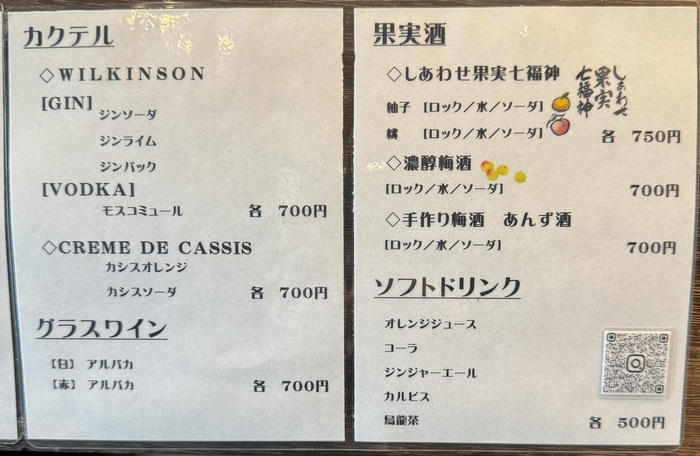 カクテル
◇WILKINSON
[GIN]
ジンソーダ
ジンライム
ジンバック
[VODKA]
モスコミュール 各 700円
◇CREME DE CASSIS
カシスオレンジ
カシスソーダ 各 700円
グラスワイン
【白】 アルパカ
【赤】 アルパカ 各 700円
果実酒
◇しあわせ果実七福神
しあわせ
果実
七福神
柚子 [ロック／水／ソーダ]
桃 [ロック／水／ソーダ] 各 750円
◇濃醇梅酒
[ロック／水／ソーダ] 700円
◇手作り梅酒 あんず酒
[ロック／水／ソーダ] 700円
ソフトドリンク
オレンジジュース
コーラ
ジンジャーエール
カルピス
烏龍茶 各 500円